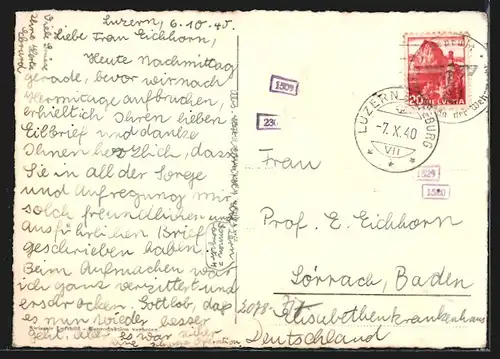 Luzern, 6.10.40.
Liebe Frau Eichhorn,
Heute Nachmittag
gerade, bevor wir nach
Hermitage aufbrachen,
erhielt ich Ihren lieben
Eilbrief und danke
Ihnen herzlich, dass
Sie in all der Sorge
und Aufregung mir
solch freundlichen und
ausführlichen Brief
geschrieben haben.
Beim Aufmachen war
ich ganz verzittert und
erschrocken. Gottlob, dass
es nun wieder besser
geht, aber es war
Viele Grüsse
Ihre
1509
230
1529
1530
20 HELVETIA
LUZERN
-7.X.40
VII
Frau
Prof. E. Eichhorn
Lörrach, Baden
Elisabethenkrankenhaus
Deutschland